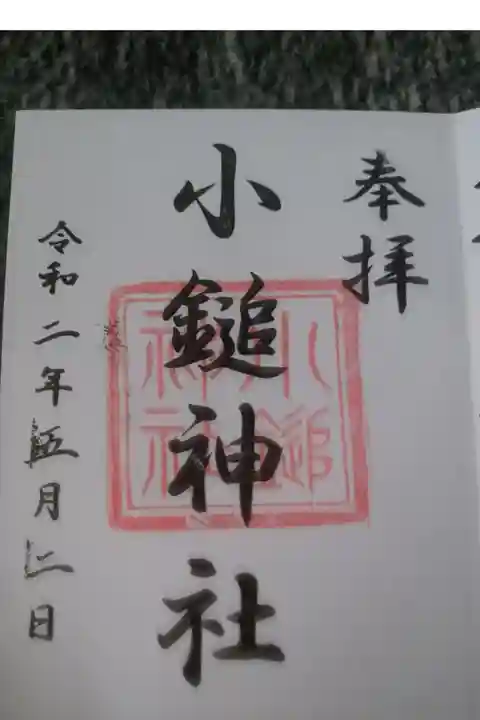 奉拝
小鎚神社
小鎚
神社
令和二年五月日